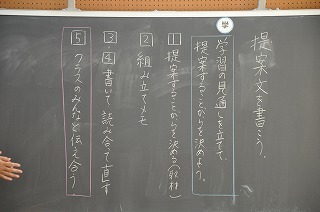 提案文を書こう。
学
学習の見通しを立てて、
提案することがらを決めよう。
1 提案することがらを決める(取材)
2 組み立てメモ
3・4 書いて読み合って直す
5 クラスのみんなと伝え合う